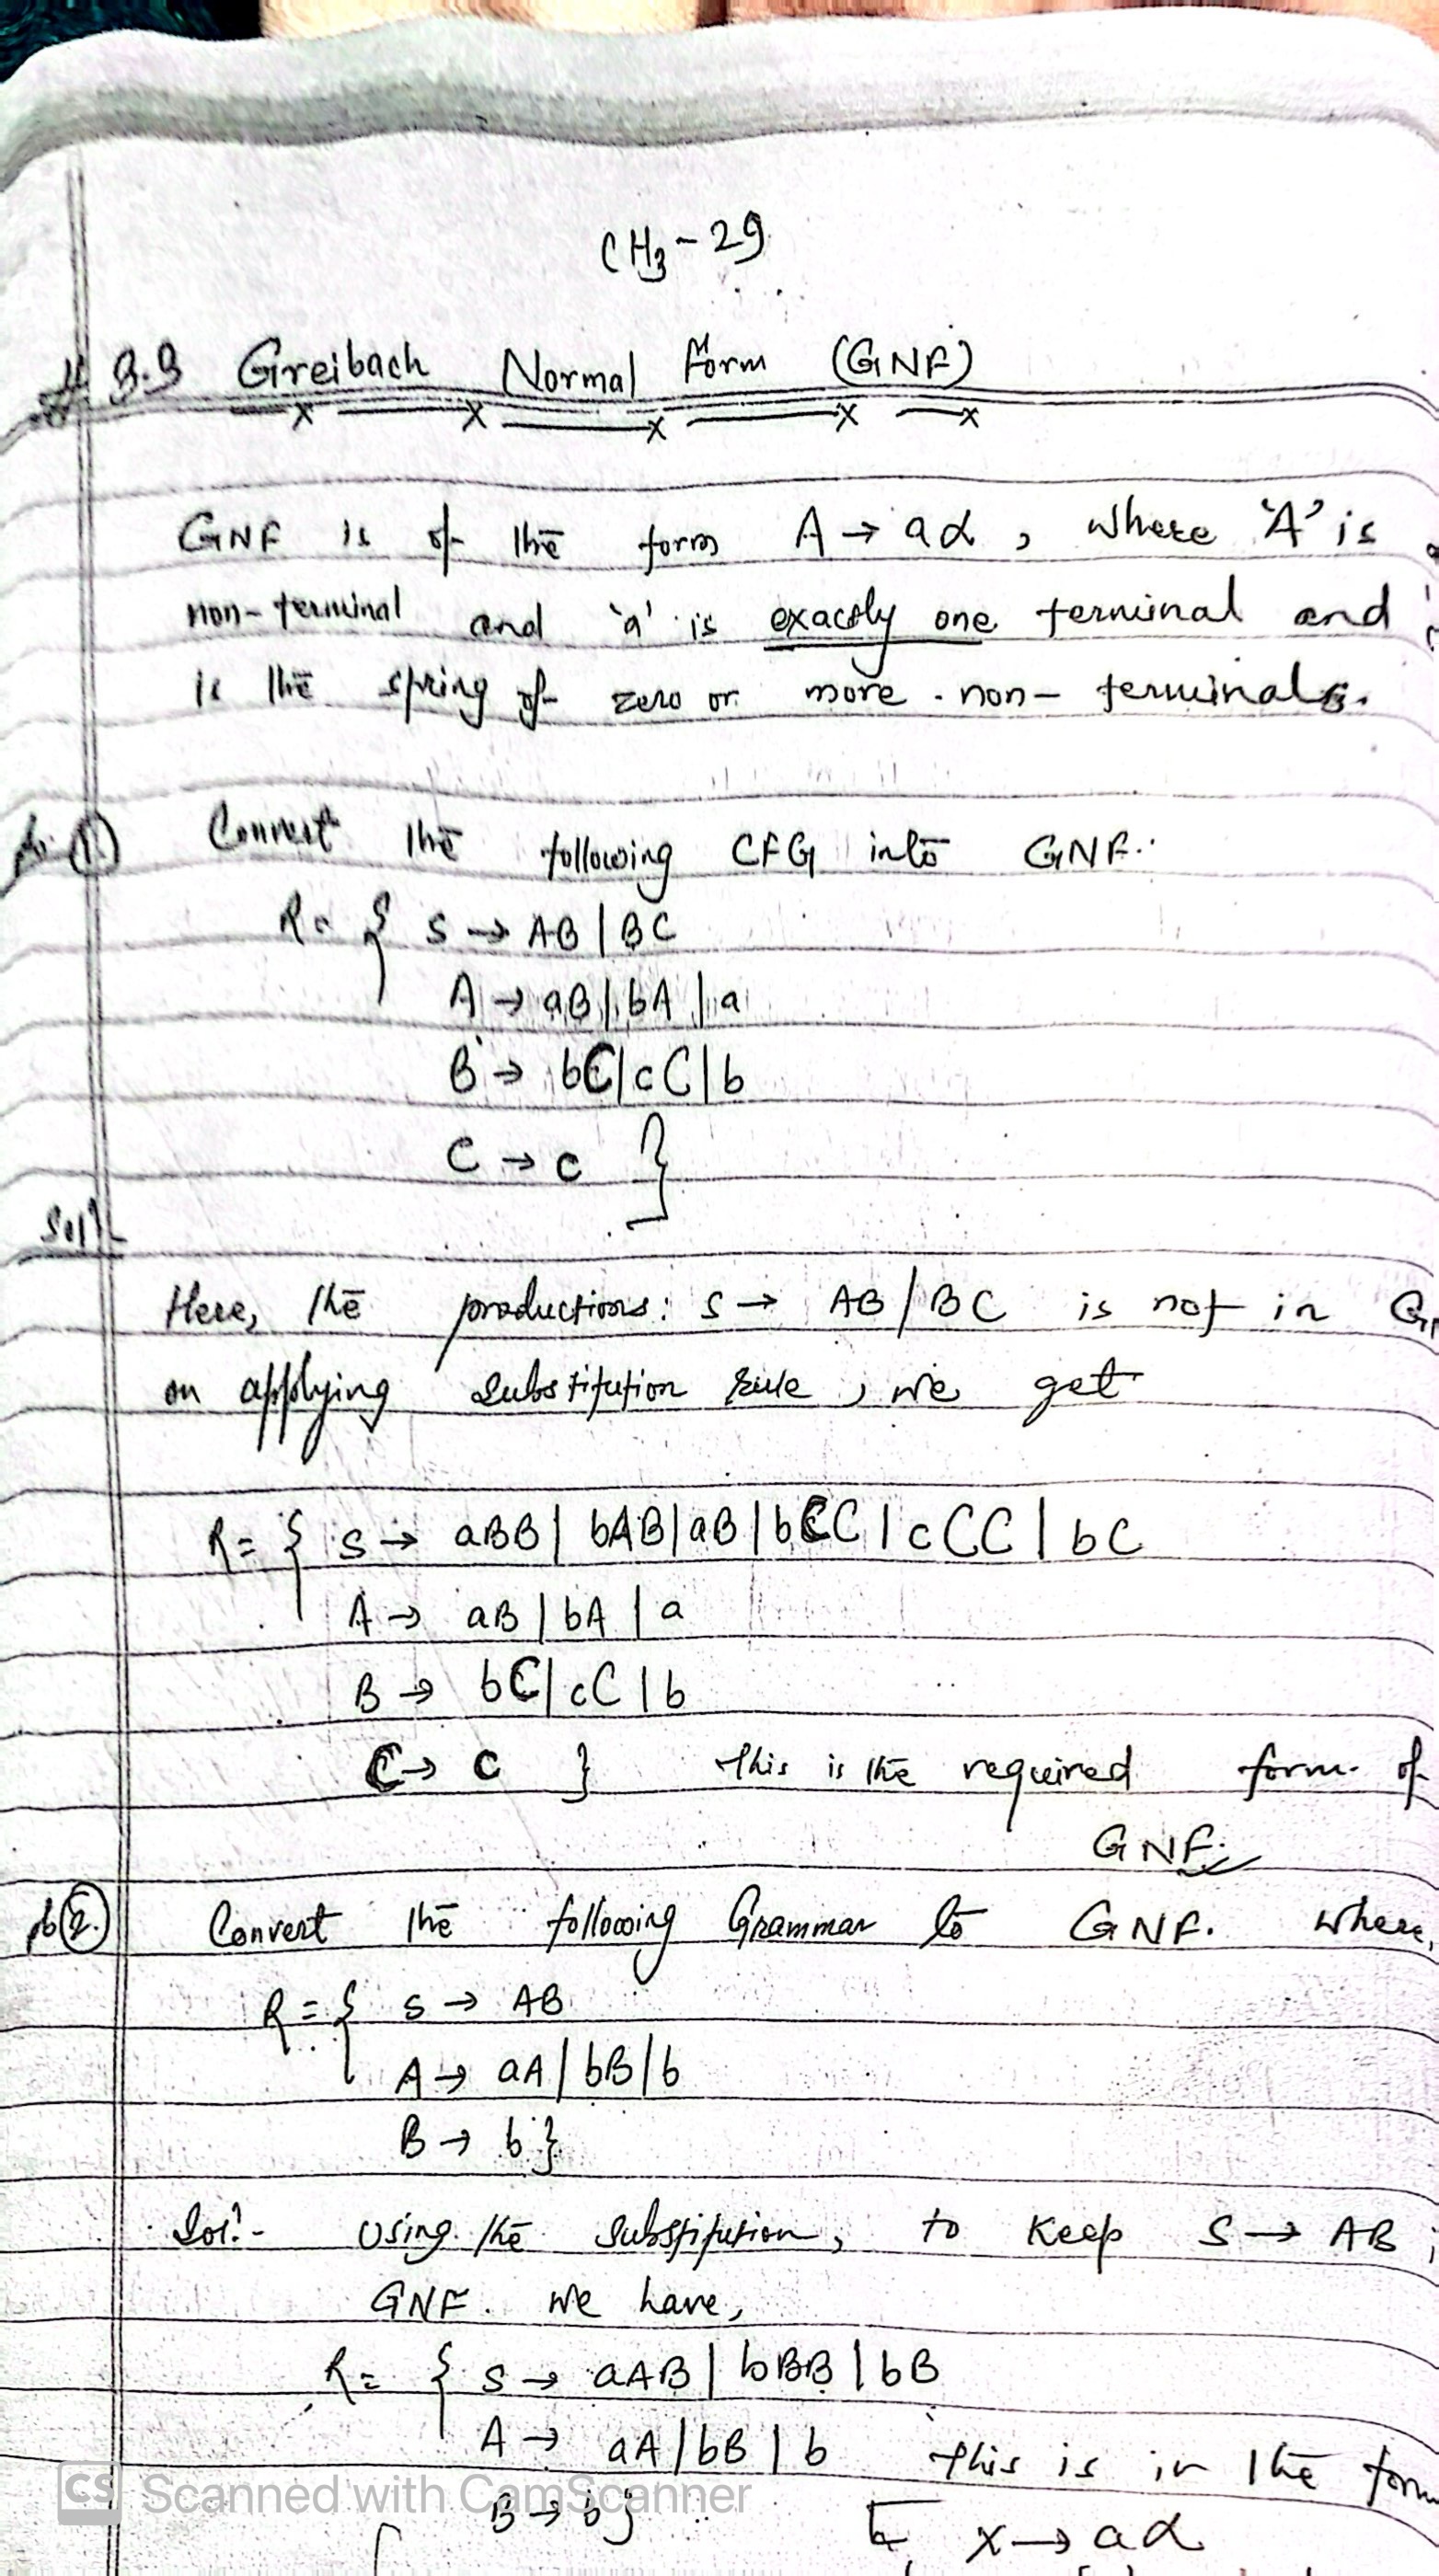 CH3-29
# 3.3 Greibach Normal Form (GNF)
GNF is of the form A → aα , where 'A' is a
non-terminal and 'a' is exactly one terminal and
is the string of zero or more non-terminals.
1. Convert the following CFG into GNF.
R= { S → AB | BC
A → aB | bA | a
B → bC | cC | b
C → c }
Soln
Here, the productions: S → AB / BC is not in
on applying substitution rule, we get
R= { S → aBB | bAB | aB | bCC | cCC | bC
A → aB | bA | a
B → bC | cC | b
C → c } This is the required form of
GNF.
2. Convert the following Grammar to GNF. where,
R = { S → AB
A → aA / bB / b
B → b }
Sol:- Using the substitution, to keep S → AB
GNF. We have,
R= { S → aAB | bBB | bB
A → aA / bB | b This is in the form
CS Scanned with CamScanner
B → b }
X → aα